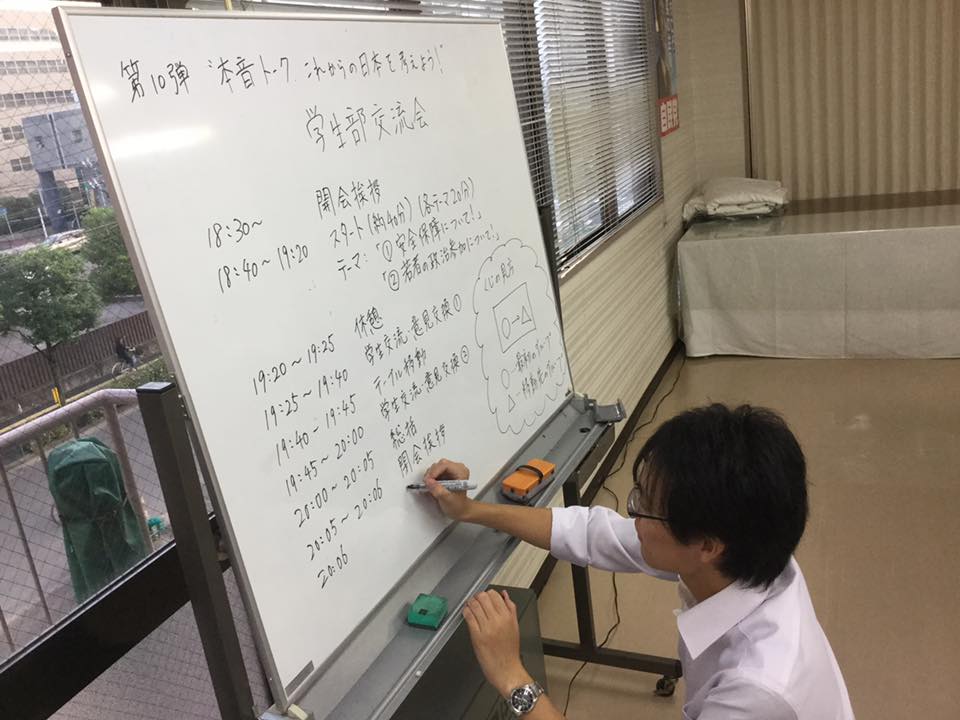 第10弾 "本音トーク これからの日本を考えよう!"
学生部交流会
18:30~ 開会挨拶
18:40~19:20 スタート(約40分)(各テーマ20分)
テーマ:「①安全保障について!」
「②若者の政治参加について!」
19:20~19:25 休憩
19:25~19:40 学生交流・意見交換①
19:40~19:45 テーブル移動
19:45~20:00 学生交流・意見交換②
20:00~20:05 総括
20:05~20:06 閉会挨拶
20:06
くじの見方
○→△
○…最初のグループ
△…移動先のグループ